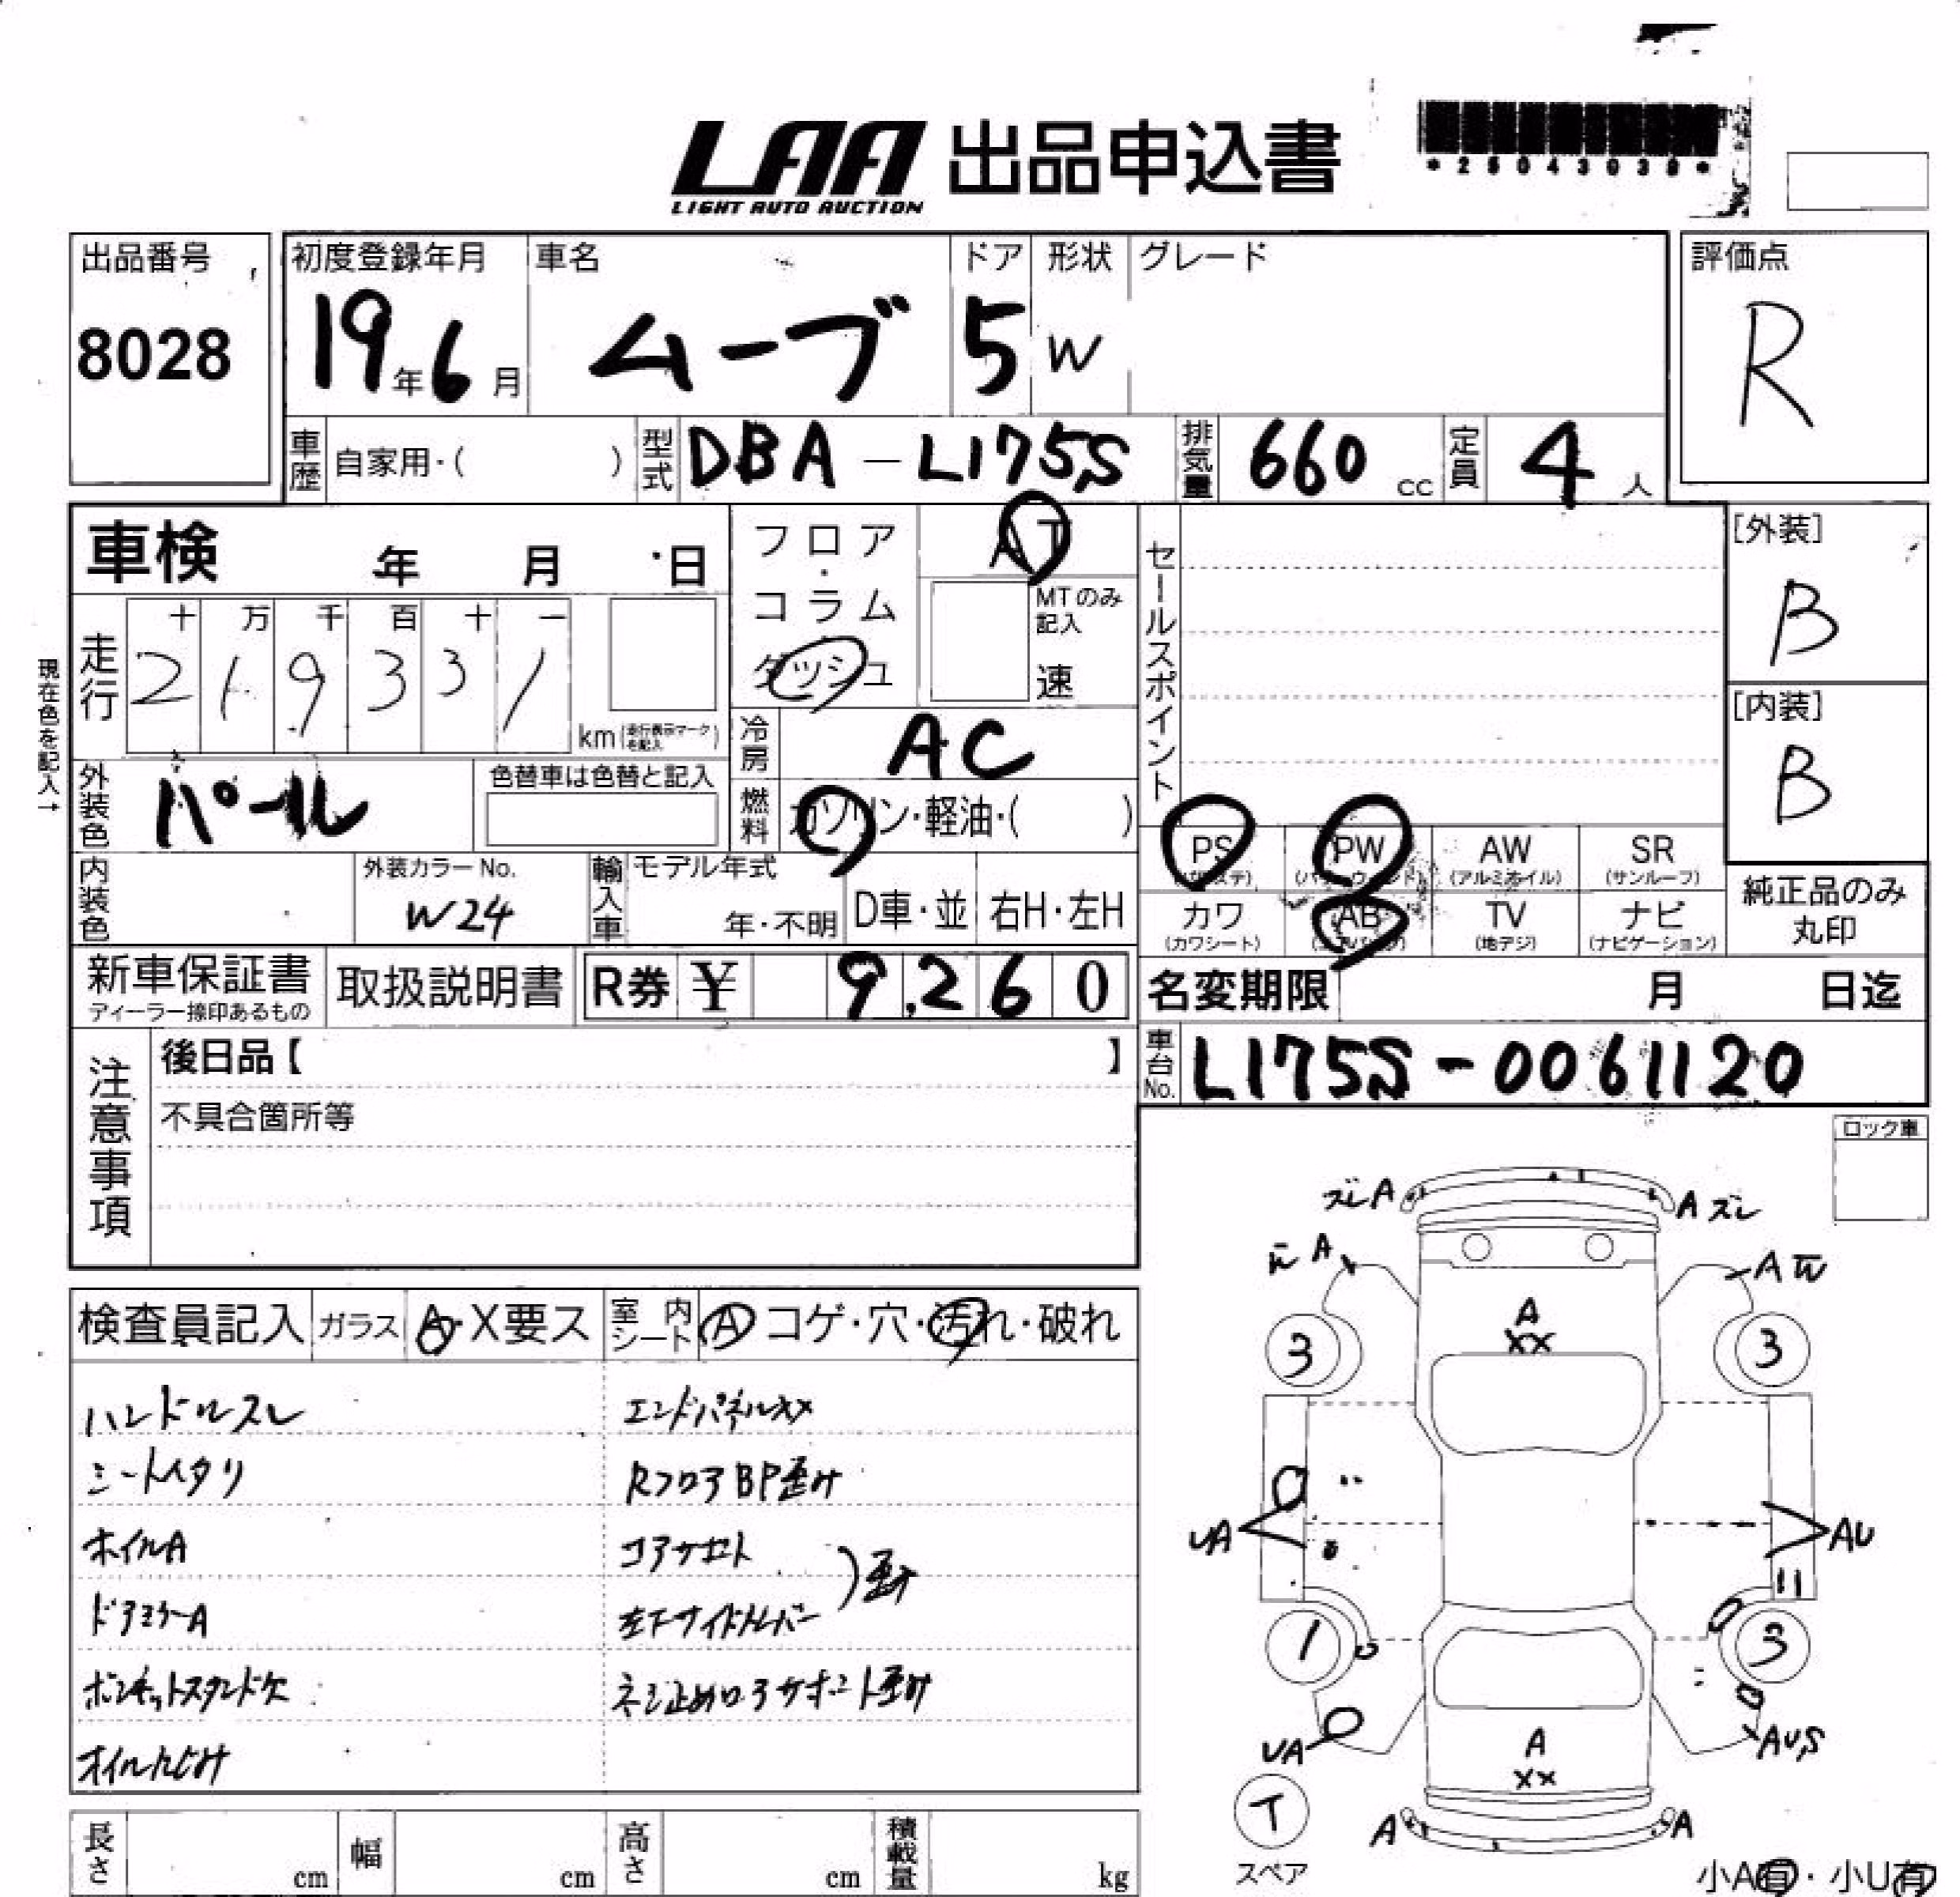 LAA 出品申込書
LIGHT AUTO AUCTION
*25043039*
出品番号
8028
初度登録年月 車名 ドア 形状 グレード
19年6月 ムーブ 5 W
評価点
R
車歴 自家用・( ) 型式 DBA-L175S 排気量 660cc 定員 4人
車検 年 月 日
フロア・コラム ダッシュ
AT
MTのみ記入
速
セールスポイント
[外装]
B
[内装]
B
現在色を記入→
走行 十 万 千 百 十 一
2 1 9 3 3 1 km (走行表示マークを記入)
冷房 AC
外装色 パール 色替車は色替と記入
燃料 ガソリン・軽油・( )
内装色 外装カラーNo. W24
輸入車 モデル年式 年・不明 D車・並 右H・左H
PS (パワステ) PW (パワーウィンド) AW (アルミホイル) SR (サンルーフ)
カワ (カワシート) AB (エアバッグ) TV (地デジ) ナビ (ナビゲーション)
純正品のみ丸印
新車保証書 ディーラー捺印あるもの
取扱説明書
R券 ¥ 9,260
名変期限 月 日迄
車台No. L175S-0061120
注意事項
後日品【 】
不具合箇所等
ロック車
検査員記入 ガラス A・X要ス 室内シート A コゲ・穴・汚れ・破れ
ハンドルスレ エンドパネルXX
シートヘタリ RフロアBP歪み
ホイルA コアサポート
ドアミラーA 左下サイドメンバー )歪み
ボンネットスタンド欠 ネジ止めロアサポート歪み
オイルにじみ
ズレA Aズレ
A A
A
XX
3 3
UA AU
1 3
UA AUS
A
XX
T
スペア
A A
長さ cm 幅 cm 高さ cm 積載量 kg
小A有・小U有